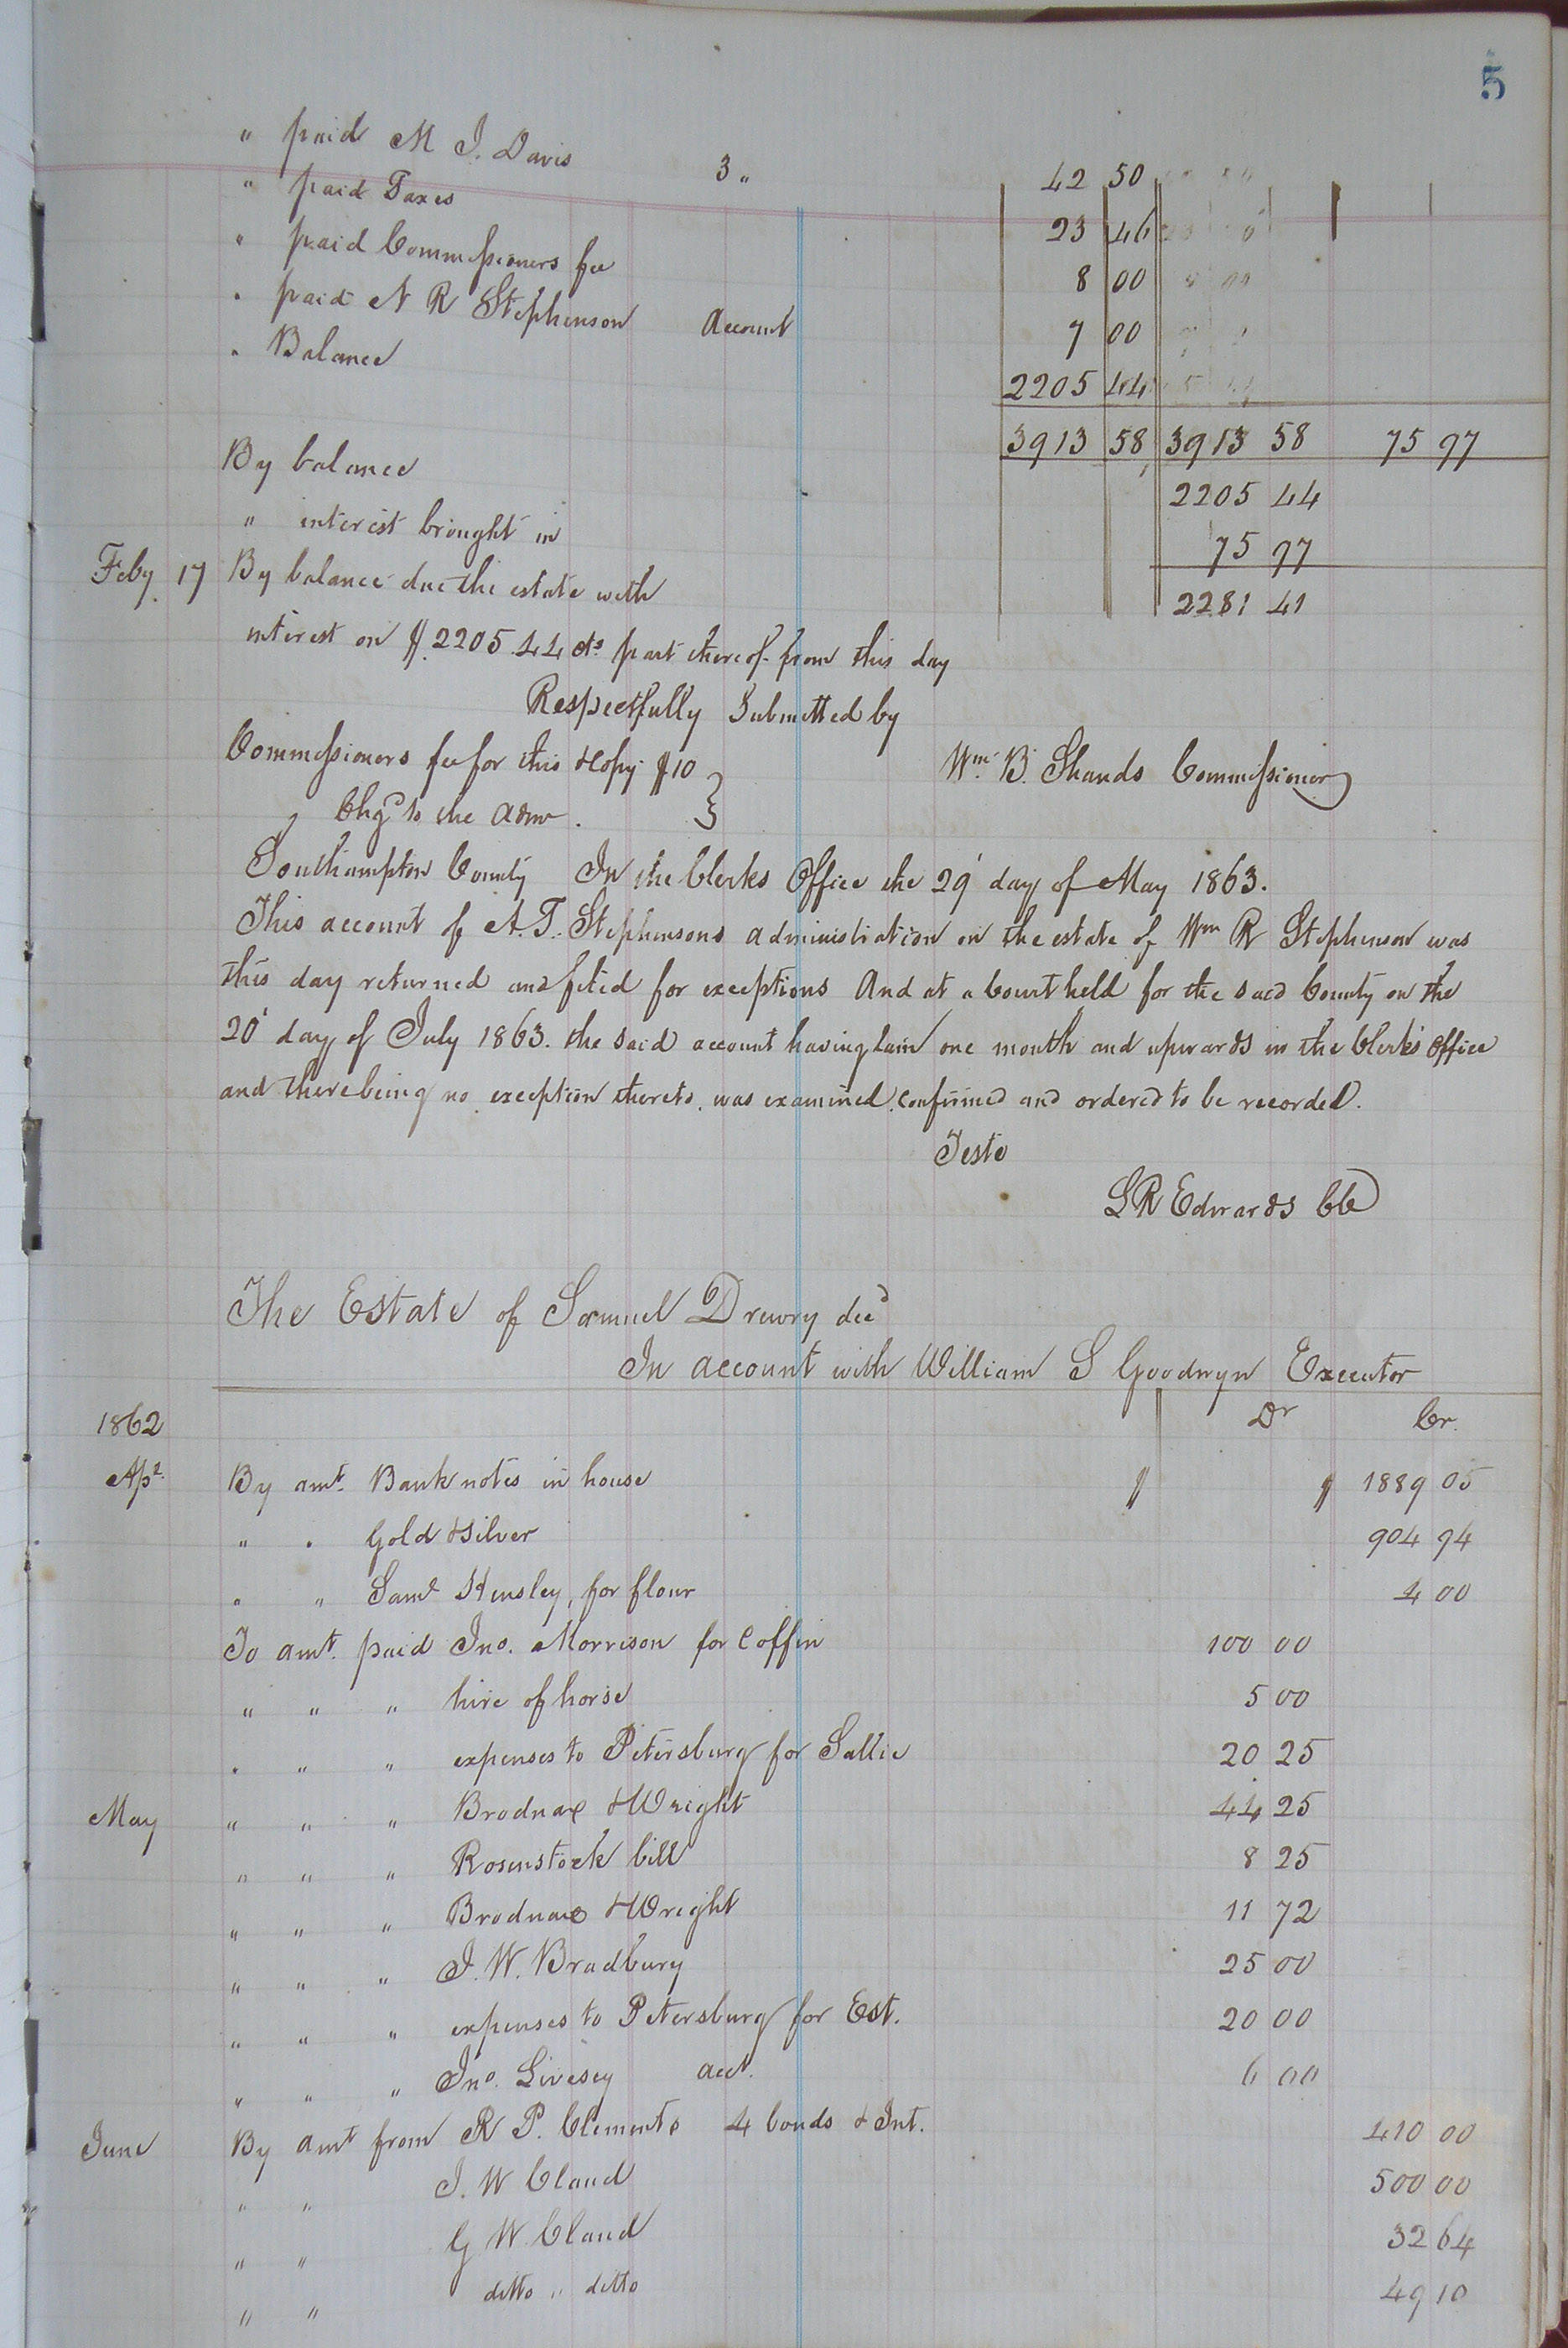 5
" paid M J. Davis 3 " 42 50
" paid Taxes 23 46
" paid Commissioners fee 8 00
" paid N R Stephenson Account 7 00
" Balance 2205 44
3913 58 3913 58 75 97
By balance 2205 44
" interest brought in 75 97
Feby 17 By balance due the estate with 2281 41
interest on $.2205.44 cts part thereof from this day
Respectfully Submitted by
Commissioners fee for this & Copy $10 Wm. B. Shands Commissioner
Chgd to the Admr. }
Southampton County In the Clerks Office the 29' day of May 1863.
This account of A. T. Stephensons administration on the estate of Wm R Stephenson was
this day returned and filed for exceptions And at a Court held for the said County on the
20' day of July 1863. the said account having lain one month and upwards in the Clerks Office
and there being no exception thereto, was examined, confirmed and ordered to be recorded.
Teste
L R Edwards CC
The Estate of Samuel Drewry decd
In account with William S Goodwyn Executor
1862 Dr Cr.
Apl. By amt. Bank notes in house $ $ 1889 05
" " Gold & Silver 904 94
" " Saml Hensley, for flour 4 00
To amt. paid Jno. Morrison for Coffin 100 00
" " " hire of horse 5 00
" " " expenses to Petersburg for Sallie 20 25
May " " " Brodnax & Wright 44 25
" " " Rosenstock bill 8 25
" " " Brodnax & Wright 11 72
" " " J. W. Bradbury 25 00
" " " expenses to Petersburg for Est. 20 00
" " " Jno. Livesey acct. 6 00
June By amt from R P. Clements 4 bonds & Int. 410 00
" " J. W Claud 500 00
" " G W. Claud 32 64
" " ditto " ditto 49 10